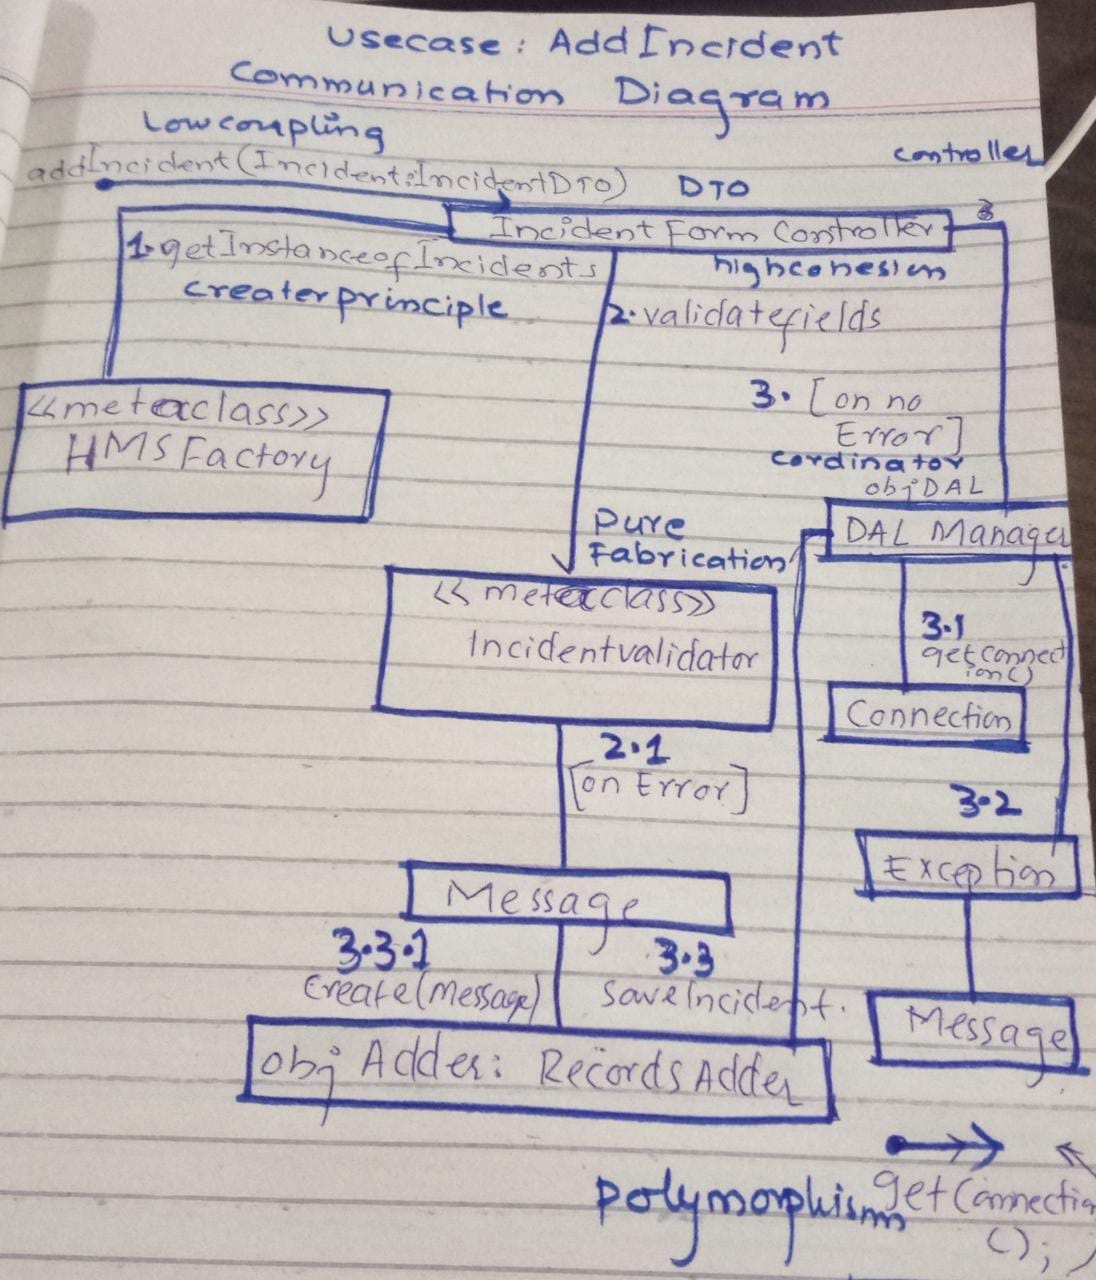 Usecase: AddIncident
Communication Diagram
Lowcoupling
controller
addIncident(Incident:IncidentDTO) DTO
3
Incident Form Controller
1.getInstanceofIncidents
highcohesion
createrprinciple
2.validatefields
3. [on no
Error]
cordinator
objDAL
<<metaclass>>
HMSFactory
DAL Manager
Pure
Fabrication
<<metaclass>>
Incidentvalidator
3.1
getconnect
ion()
Connection
2.1
[on Error]
3.2
Exception
Message
3.3.1
3.3
Create(Message)
saveIncident.
Message
obj Adder: RecordsAdder
polymorphism
getConnectio
();